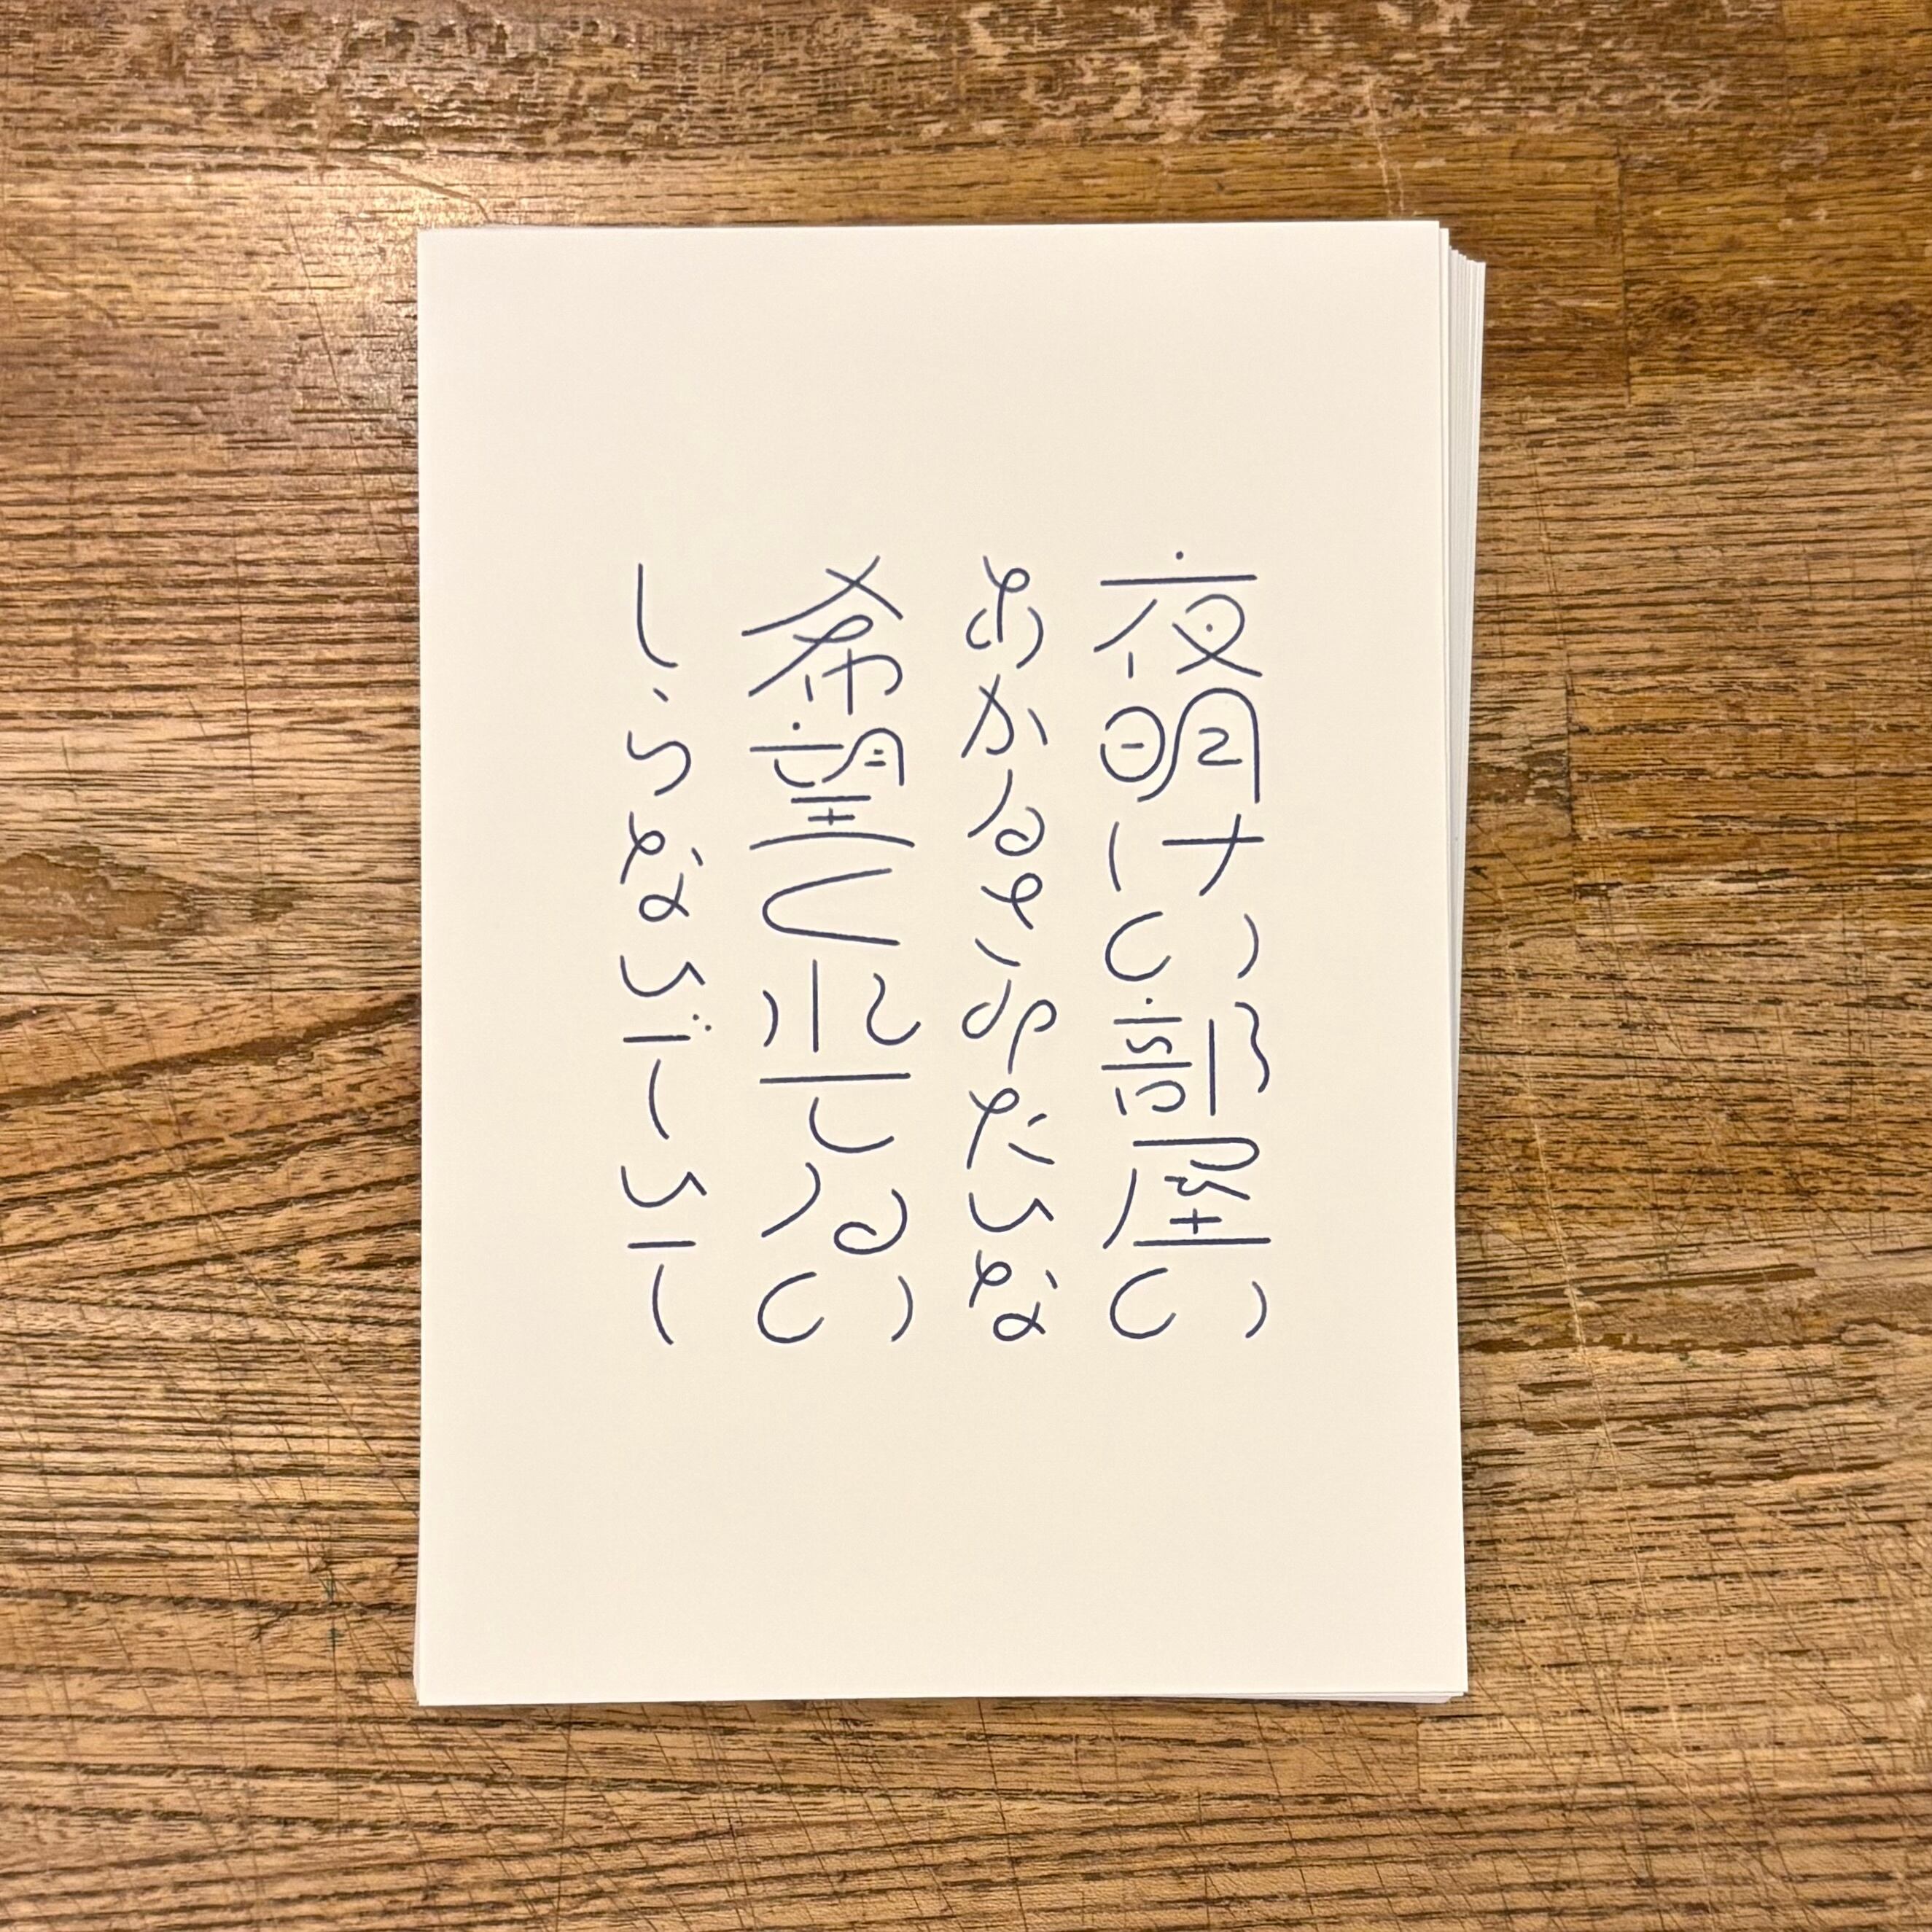 夜明けの部屋の
あかるさみたいな
希望く光るの
しらないでいて